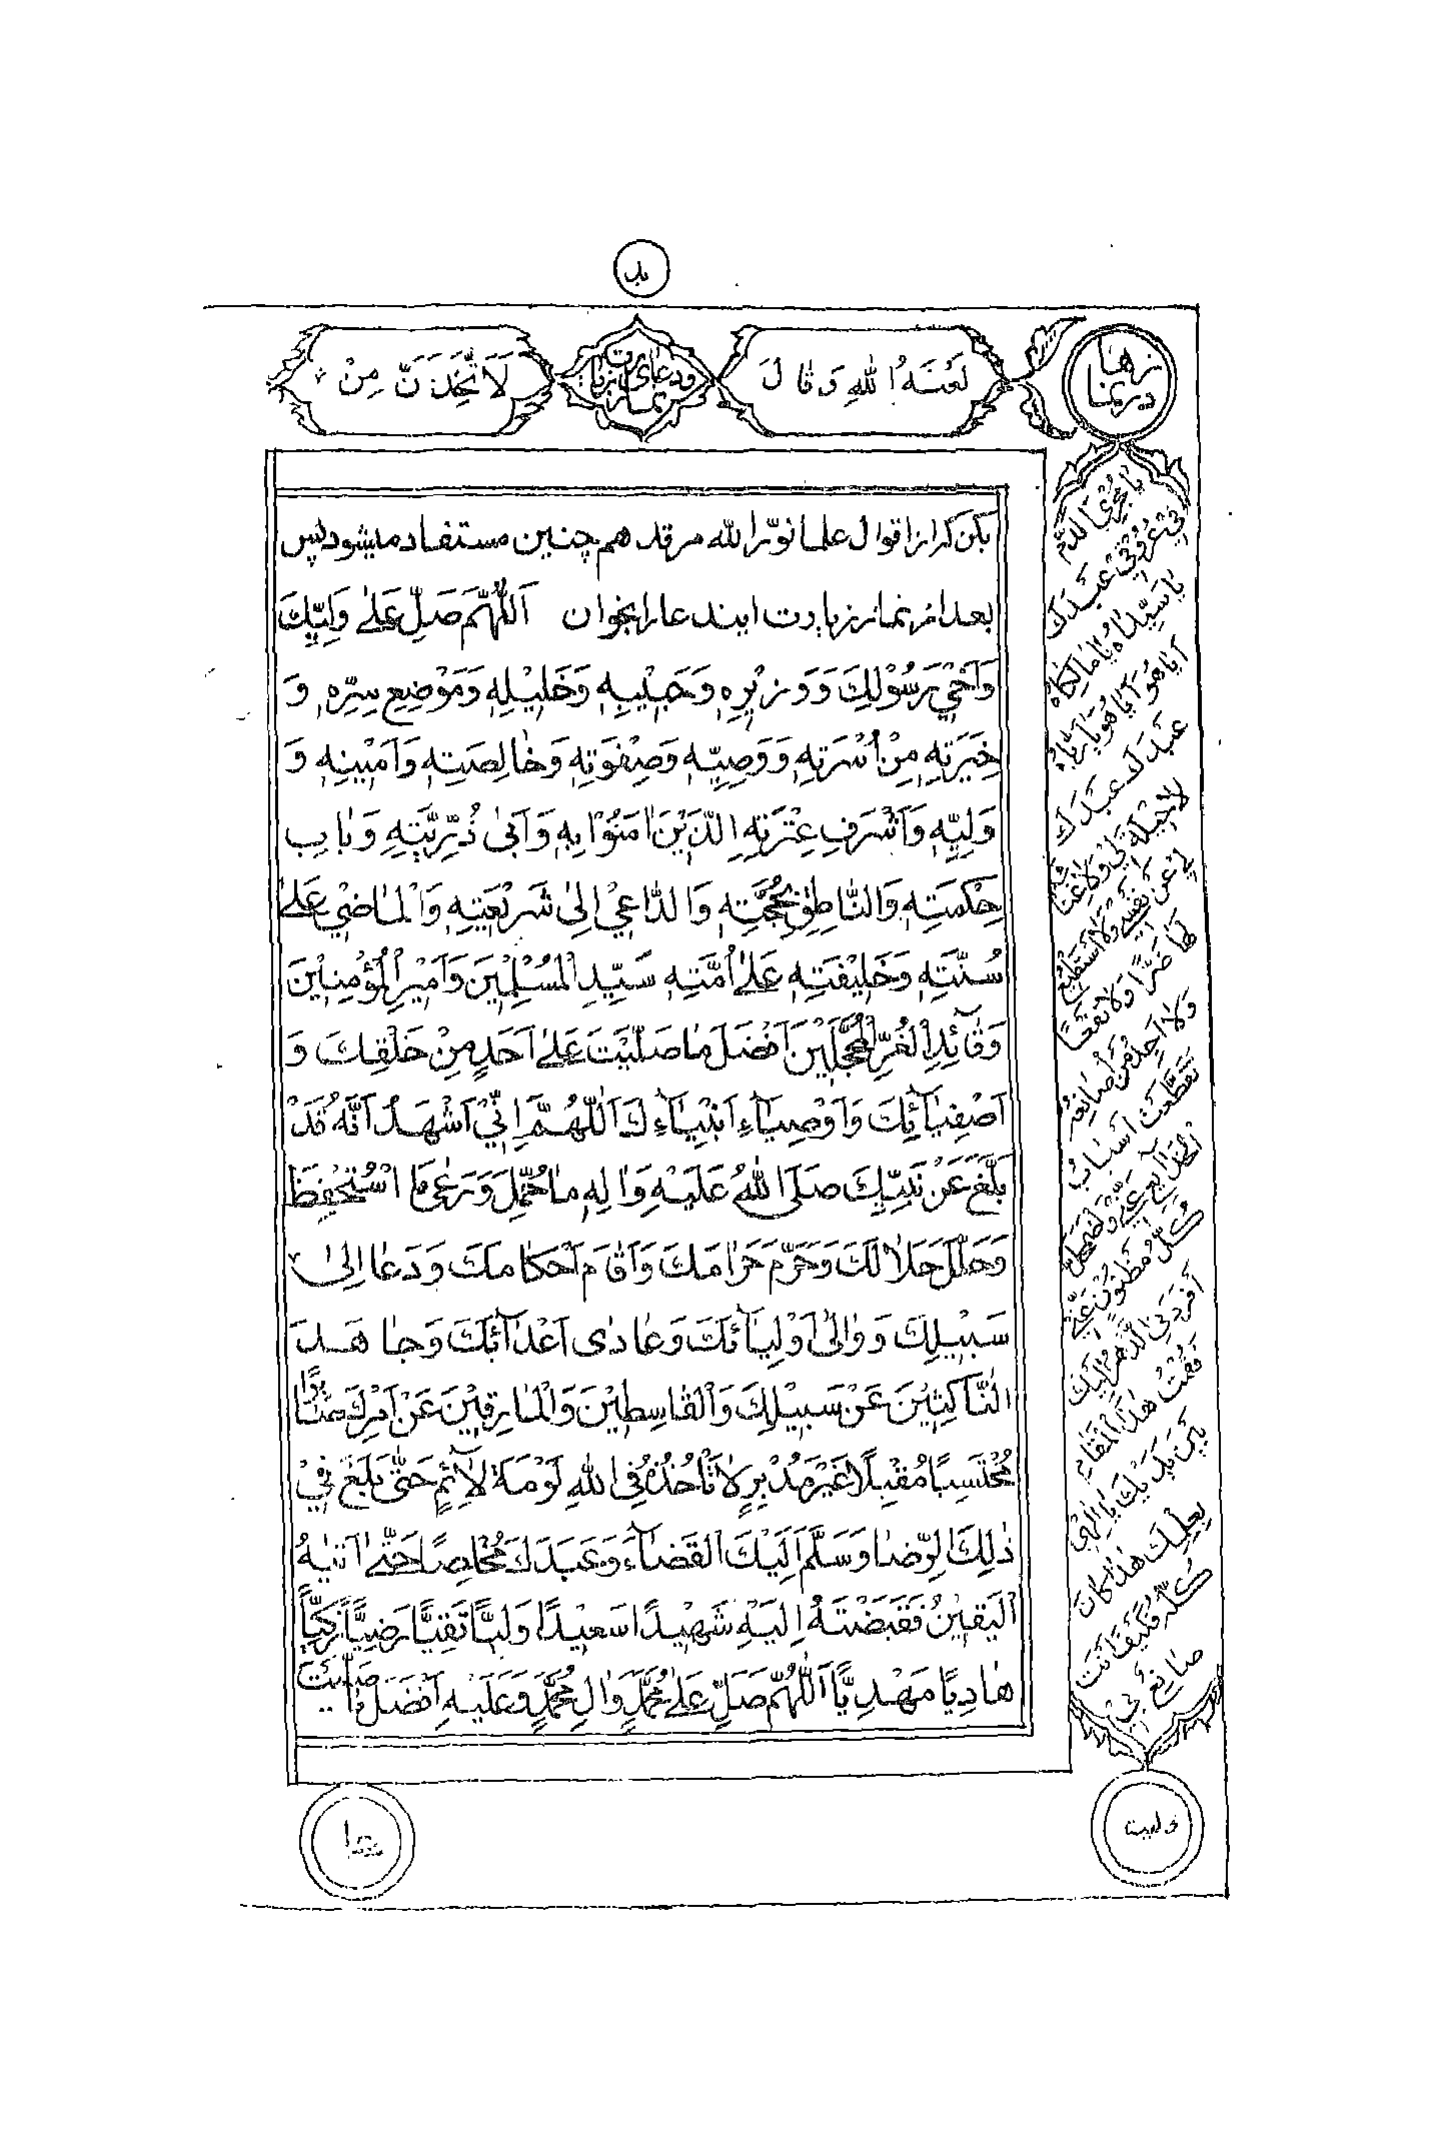 لَعَنَهُ اللهِ وَقَالَ
ودعای
نماز زیارت
لَاَتَّخِذَنَّ مِنْ
بکن که از اقوال علما نوّر الله مرقدهم چنین مستفاد میشود پس
بعد از نماز زیارت ایندعا را بخوان اَللّٰهُمَّ صَلِّ عَلٰی وَلِیِّكَ
وَاَخٖی رَسُوْلِكَ وَوَزٖیْرِهٖ وَحَبٖیْبِهٖ وَخَلٖیْلِهٖ وَمَوْضِعِ سِرِّهٖ وَ
خِیَرَتِهٖ مِنْ اُسْرَتِهٖ وَوَصِیِّهٖ وَصِفْوَتِهٖ وَخٰالِصَتِهٖ وَاَمٖیْنِهٖ وَ
وَلِیِّهٖ وَاَشْرَفِ عِتْرَتِهِ الَّذٖیْنَ اٰمَنُوْا بِهٖ وَاَبیٖ ذُرِّیَّتِهٖ وَبٰابِ
حِکْمَتِهٖ وَالنّٰاطِقِ بِحُجَّتِهٖ وَالدّٰاعٖیْ اِلیٰ شَرٖیْعَتِهٖ وَالْمٰاضٖیْ عَلیٰ
سُنَّتِهٖ وَخَلٖیْفَتِهٖ عَلیٰ اُمَّتِهٖ سَیِّدِ الْمُسْلِمٖیْنَ وَاَمٖیْرِ الْمُؤْمِنٖیْنَ
وَقٰآئِدِ الْغُرِّ الْمُحَجَّلٖیْنَ اَفْضَلَ مٰا صَلَّیْتَ عَلیٰ اَحَدٍ مِنْ خَلْقِكَ وَ
اَصْفِیٰآئِكَ وَاَوْصِیٰآءِ اَنْبِیٰآءِكَ اَللّٰهُمَّ اِنّٖیْ اَشْهَدُ اَنَّهُ قَدْ
بَلَّغَ عَنْ نَبِیِّكَ صَلَّی اللهُ عَلَیْهِ وَاٰلِهٖ مٰا حُمِّلَ وَرَعٰی مَا اسْتُحْفِظَ
وَحَلَّلَ حَلاٰلَكَ وَحَرَّمَ حَرٰامَكَ وَاَقٰامَ اَحْکٰامَكَ وَدَعٰا اِلیٰ
سَبٖیْلِكَ وَوٰالیٰ اَوْلِیٰآئَكَ وَعٰادٰی اَعْدٰآئَكَ وَجٰاهَدَ
النّٰاکِثٖیْنَ عَنْ سَبٖیْلِكَ وَالْقٰاسِطٖیْنَ وَالْمٰارِقٖیْنَ عَنْ اَمْرِكَ صٰابِرًا
مُحْتَسِبًا مُقْبِلًا غَیْرَ مُدْبِرٍ لاٰ تَاْخُذُهُ فِی اللهِ لَوْمَةُ لاٰئِمٍ حَتّٰی بَلَغَ فٖیْ
ذٰلِكَ الرِّضٰا وَسَلَّمَ اِلَیْكَ الْقَضٰآءَ وَعَبَدَكَ مُخْلِصًا حَتّٰی اَتٰیهُ
الْیَقٖیْنُ فَقَبَضْتَهُ اِلَیْهِ شَهٖیْدًا سَعٖیْدًا وَلِیًّا تَقِیًّا رَضِیًّا زَکِیًّا
هٰادِیًا مَهْدِیًّا اَللّٰهُمَّ صَلِّ عَلیٰ مُحَمَّدٍ وَاٰلِ مُحَمَّدٍ وَعَلَیْهِ اَفْضَلَ مٰا صَلَّیْتَ
یٰا مُجْرِیَ الدَّمِ
فٖیْ عُرُوْقٖیْ عَبْدَكَ
یٰا سَیِّدٰاهُ یٰا مٰالِکٰاهُ
اَیٰا هُوَ اَیٰا هُوَ یٰا رَبّٰاهُ
عَبْدَكَ عَبْدَكَ
لاٰ حٖیْلَةَ لٖیْ وَلاٰ غِنًا
بٖیْ عَنْ نَفْسٖیْ وَلاٰ اَسْتَطٖیْعُ
لَهٰا ضَرًّا وَلاٰ نَفْعًا
وَلاٰ اَجِدُ مَنْ اُصٰانِعُهُ
تَقَطَّعَتْ اَسْبٰابُ
الْخَدٰایِعِ عَنّٖیْ وَاضْمَحَلَّ
کُلُّ مَظْنُوْنٍ عَنّٖیْ
اَفْرَدَنِی الدَّهْرُ اِلَیْكَ
فَقُمْتُ هٰذَا الْمَقٰامَ
بَیْنَ یَدَیْكَ یٰا اِلٰهٖیْ
بِعِلْمِكَ هٰذٰا کٰانَ
کُلُّهُ فَکَیْفَ اَنْتَ
صٰانِعٌ بٖیْ